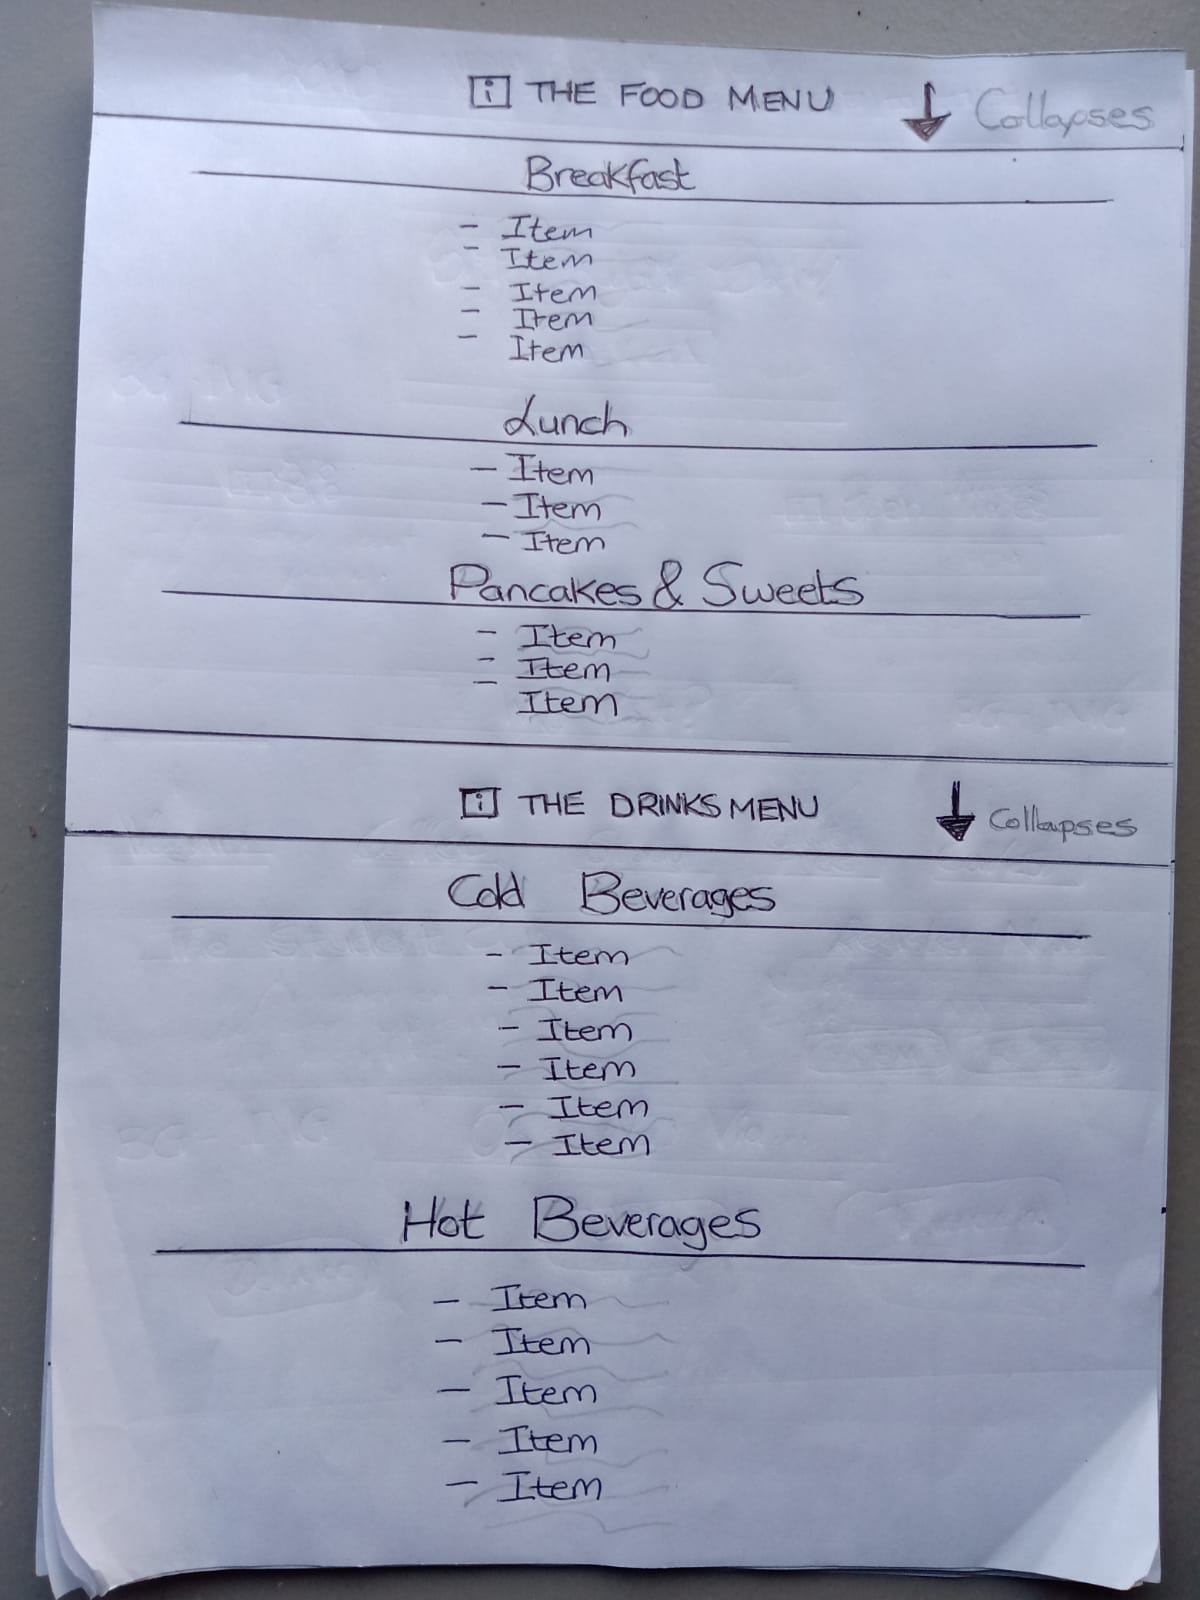 i THE FOOD MENU Collapses
Breakfast
- Item
- Item
- Item
- Item
- Item
Lunch
- Item
- Item
- Item
Pancakes & Sweets
- Item
- Item
- Item
i THE DRINKS MENU Collapses
Cold Beverages
- Item
- Item
- Item
- Item
- Item
- Item
Hot Beverages
- Item
- Item
- Item
- Item
- Item